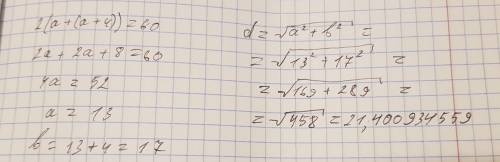 2(a+(a+4))=60
2a+2a+8=60
4a=52
a=13
b=13+4=17
d=√a²+b² =
=√13²+17² =
=√169+289 =
=√458=21,400934559